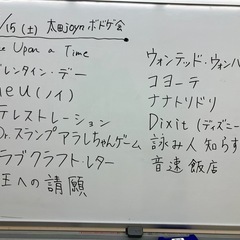 /15(土) 太田joynボドゲ会
e Upon a Time
レンタイン・デー
neu(ノイ)
テレストレーション
Dr.スランプアラレちゃんゲーム
ラブクラフト・レター
王への請願
ウォンテッド・ウォンバ
コヨーテ
ナナトリドリ
Dixit(ディズニー
詠み人知らず
音速飯店